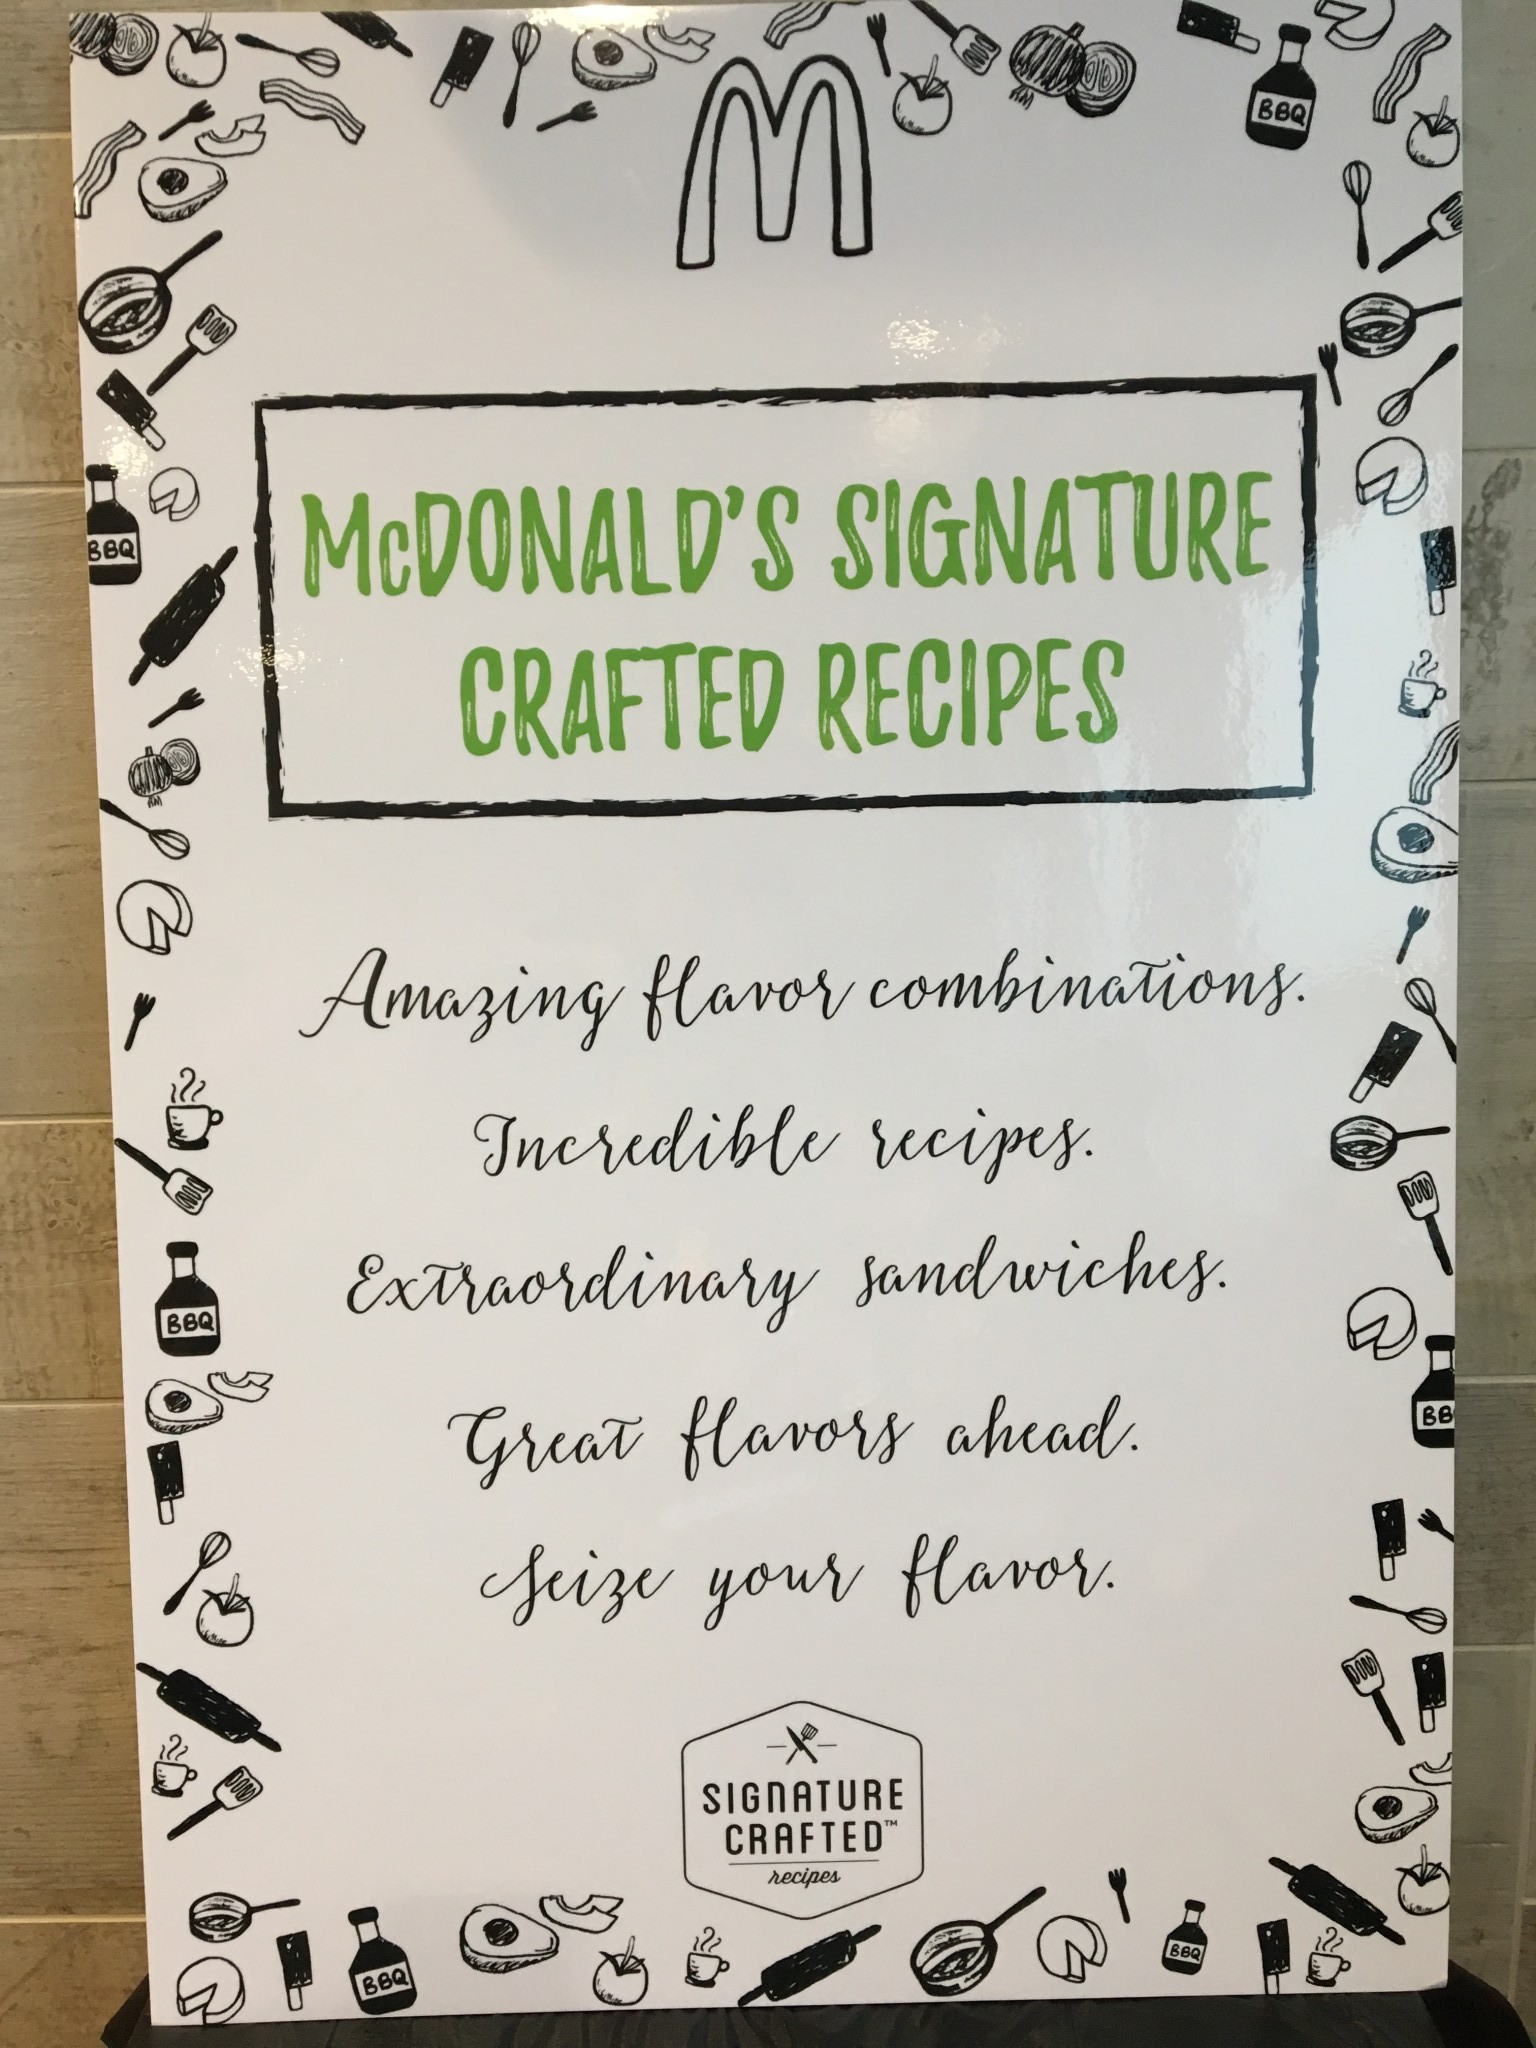 BBQ
McDONALD'S SIGNATURE
CRAFTED RECIPES
BBQ
Amazing flavor combinations.
Incredible recipes.
Extraordinary sandwiches.
BBQ
Great flavors ahead.
BB
Seize your flavor.
SIGNATURE
CRAFTED™
recipes
BBQ
BBQ